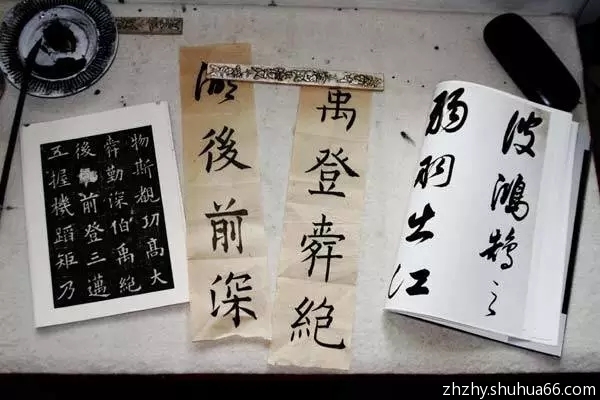 物斯覩功高大
舜勤深伯禹絕
後前登三邁
五握機蹈矩乃
後前深
禹登舜絕
鴻鵠之
弱羽出江
zhzhy.shuhua66.com